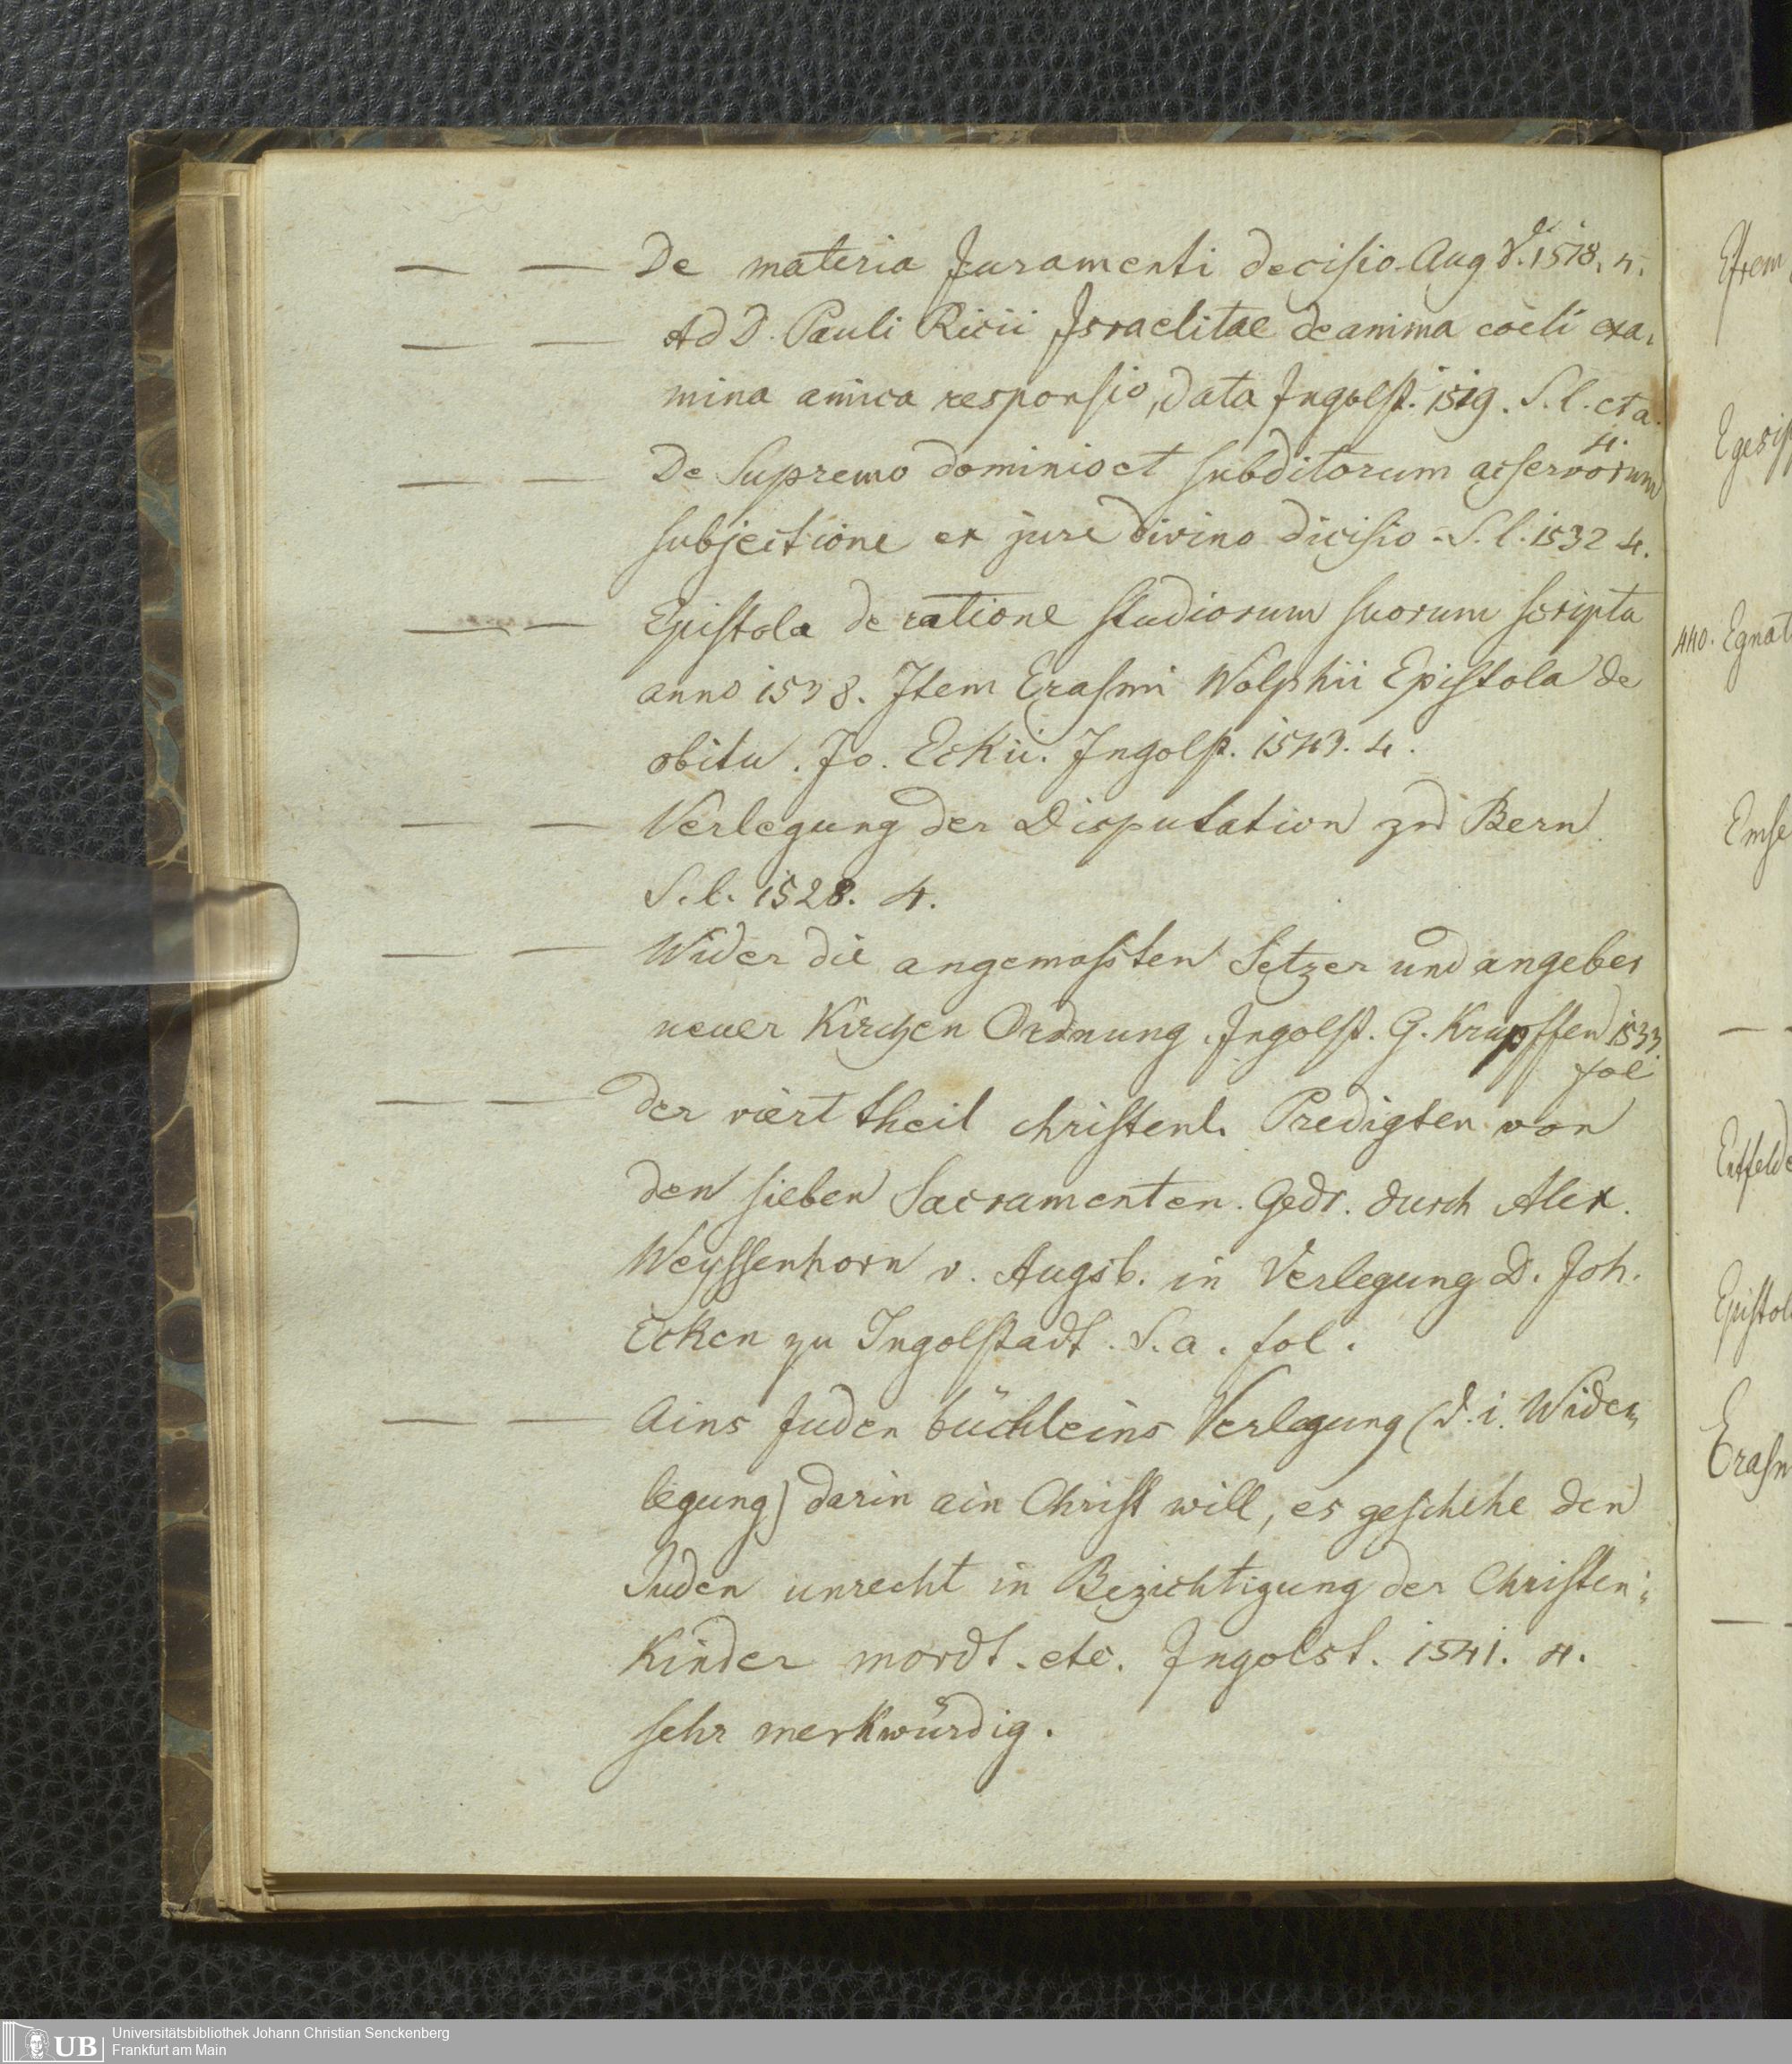 — — De materia Juramenti decisio. Aug d. 1518. 4.
— — Ad D. Pauli Ricii Israelitae de anima coeli exa-
mina amica responsio, data Ingolst. 1519. S. l. et a.
4.
— — De Supremo dominio et subditorum ac servorum
subjectione ex jure divino dicisio - S. l. 1532 4.
— — Epistola de ratione studiorum suorum scripta
anno 1538. Item Erasmi Wolphii Epistola de
obitu. Jo. Eckii. Ingolst. 1543. 4.
— — Verlegung der Disputation zu Bern
S. l. 1528. 4.
— — Wider die angemassten Setzer und angeber
neuer Kirchen Ordnung. Ingolst. G. Krapffen 1533.
fol
— — der viert theil christenl. Predigten von
den sieben Sacramenten. Gedr. durch Alex.
Weyssenhorn v. Augsb. in Verlegung D. Joh.
Ecken zu Ingolstadt. S. a. fol.
— — Ains Juden büchleins Verlegung (d. i. Wider-
legung) darin ain Christ will, es geschehe den
Juden unrecht in Bezichtigung der Christen-
Kinder mordt. etc. Ingolst. 1541. 4.
sehr merkwürdig.
Efrem
Egesip
440. Egnat
Emse
—
Epistol
Erasm
—
UB Universitätsbibliothek Johann Christian Senckenberg
Frankfurt am Main